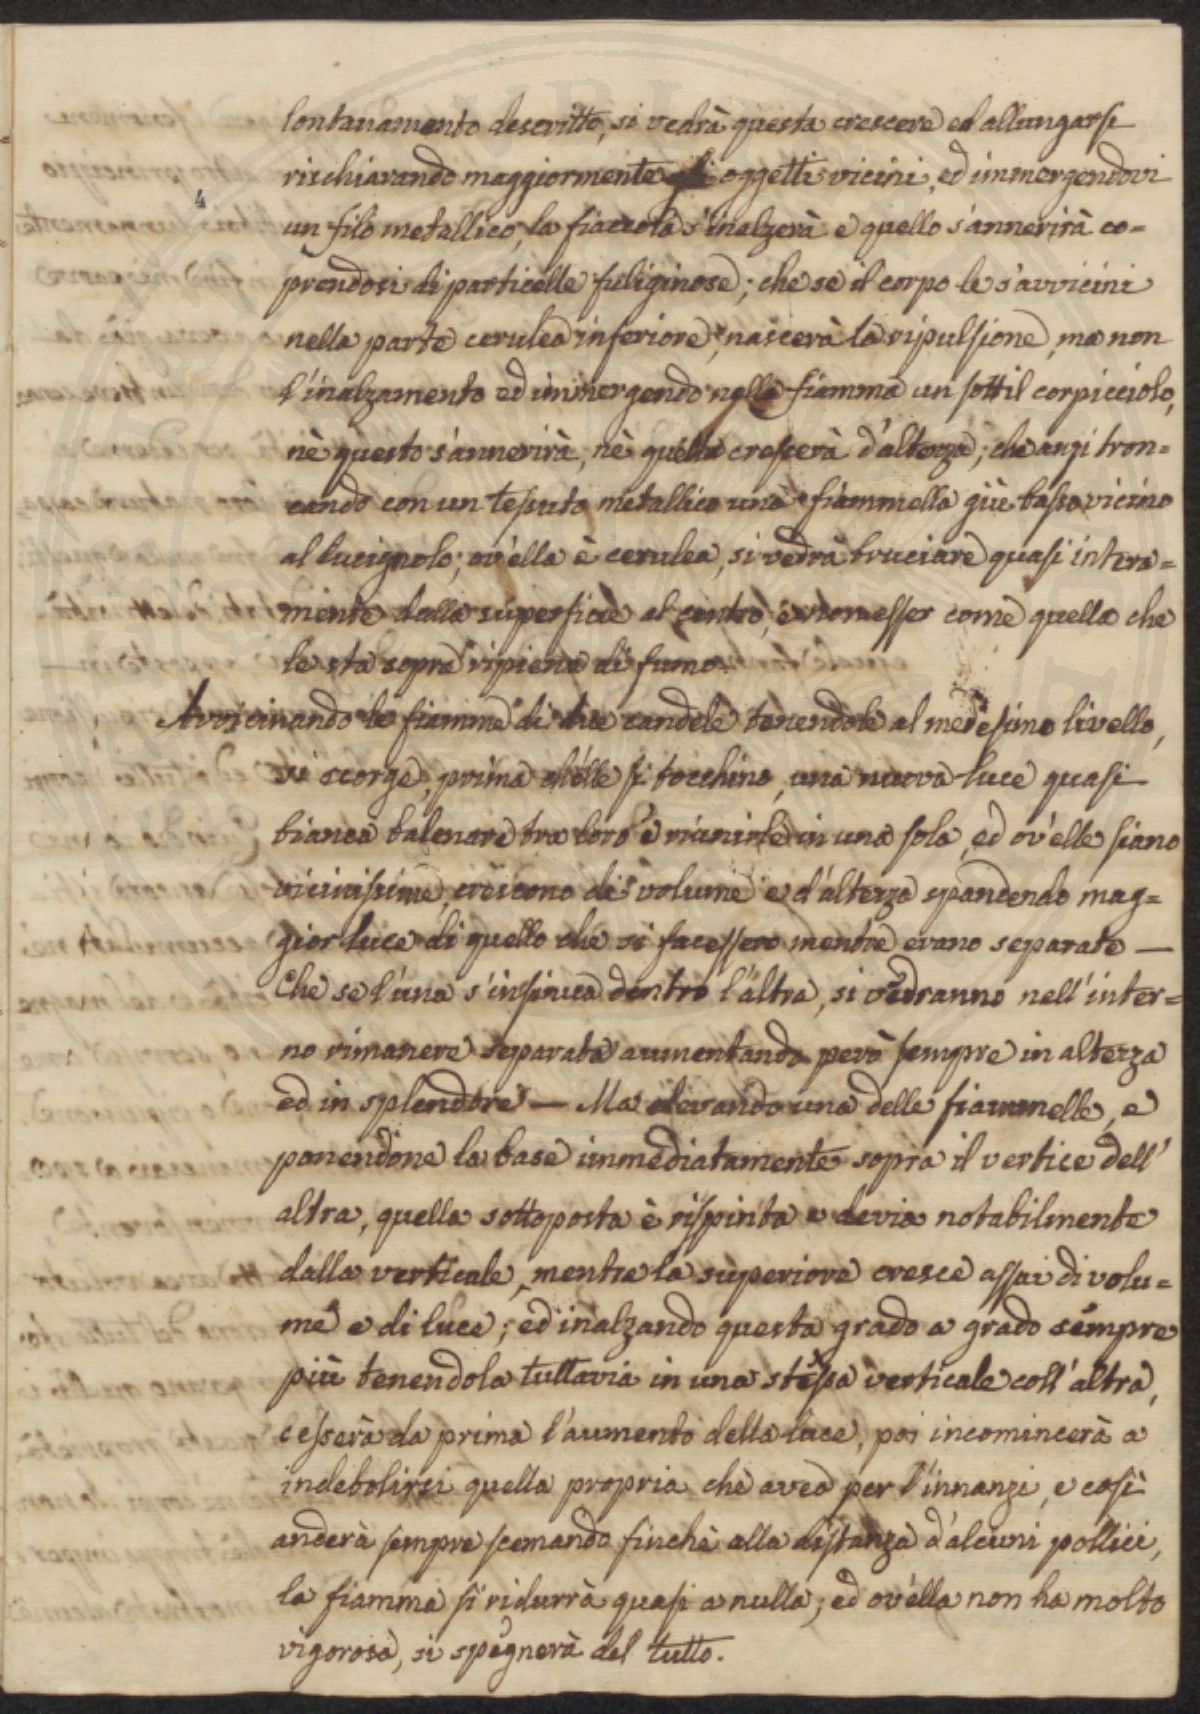 lontanamento descritto, si vedrà questa crescere ed allungarsi
rischiarando maggiormente gli oggetti vicini, ed immergendovi
4
un filo metallico, la fiaccola s'inalzerà e quello s'annerirà co=
prendosi di particelle fuliginose; che se il corpo le s'avvicini
nella parte cerulea inferiore, nascerà la ripulsione, ma non
l'inalzamento ed immergendo nella fiamma un sottil corpicciolo,
nè questo s'annerirà, nè quella crescerà d'altezza; che anzi tron=
cando con un tessuto metallico una fiammella giù basso vicino
al lucignolo, ov'ella è cerulea, si vedrà bruciare quasi intera=
mente dalla superficie al centro, e non esser come quella che
le sta sopra ripiena di fumo.
Avvicinando le fiamme di due candele tenendole al medesimo livello,
si scorge, prima ch'elle si tocchino, una nuova luce quasi
bianca balenare tra loro e riunirle in una sola, ed ov'elle siano
vicinissime, crescono di volume e d'altezza spandendo mag=
gior luce di quello che si facessero mentre erano separate —
Che se l'una s'insinua dentro l'altra, si vedranno nell'inter=
no rimanere separate aumentando però sempre in altezza
ed in splendore — Ma elevando una delle fiammelle, e
ponendone la base immediatamente sopra il vertice dell'
altra, quella sottoposta è rispinta e devia notabilmente
dalla verticale, mentre la superiore cresce assai di volu=
me e di luce; ed inalzando questa grado a grado sempre
più tenendola tuttavia in una stessa verticale coll'altra,
cesserà da prima l'aumento della luce, poi incomincerà a
indebolirsi quella propria che avea per l'innanzi, e così
anderà sempre scemando finchè alla distanza d'alcuni pollici,
la fiamma si ridurrà quasi a nulla; ed ov'ella non ha molto
vigorosa, si spegnerà del tutto.